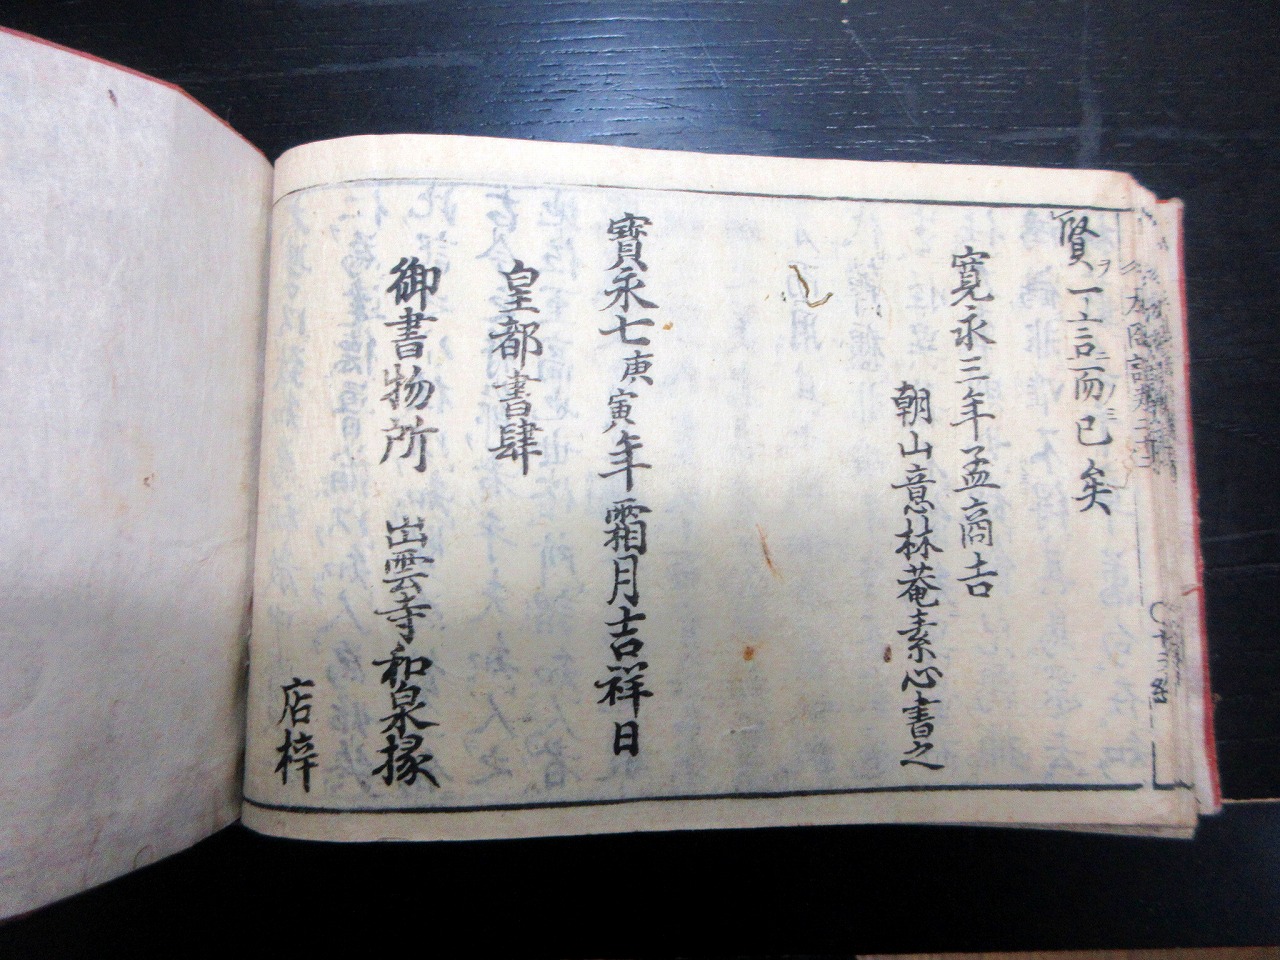 賢ヲ一言二而已矣
寛永三年孟商吉
朝山意林菴素心書之
寳永七庚寅年霜月吉祥日
皇都書肆
御書物所 出雲寺和泉掾
店梓